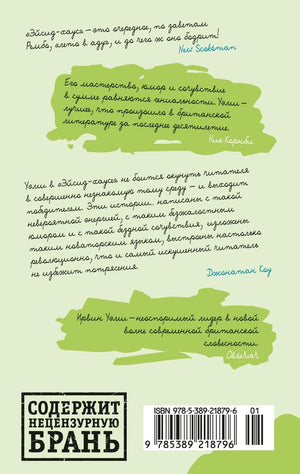 «Эйсид-хаус» – это очередное, по заветам
Рембо, «лето в аду», и до чего ж оно бодрит!
New Scotsman
Его мастерство, юмор и сочувствие
в сумме равняются гениальности. Уэлш –
лучшее, что произошло в британской
литературе за последнее десятилетие.
Ник Хорнби
Уэлш в «Эйсид-хаусе» не боится окунуть читателя
в совершенно незнакомую тому среду – и выходит
победителем. Эти истории... написаны с такой
невероятной энергией, с таким безжалостным
юмором и с такой бездной сочувствия, изложены
таким новаторским языком, выстроены настолько
революционно, что и самый искушенный читатель
не избежит потрясения.
Джонатан Коу
Ирвин Уэлш – неоспоримый лидер в новой
волне современной британской
словесности.
Observer
СОДЕРЖИТ
НЕЦЕНЗУРНУЮ
БРАНЬ
ISBN 978-5-389-21879-6
01
9 785389 218796